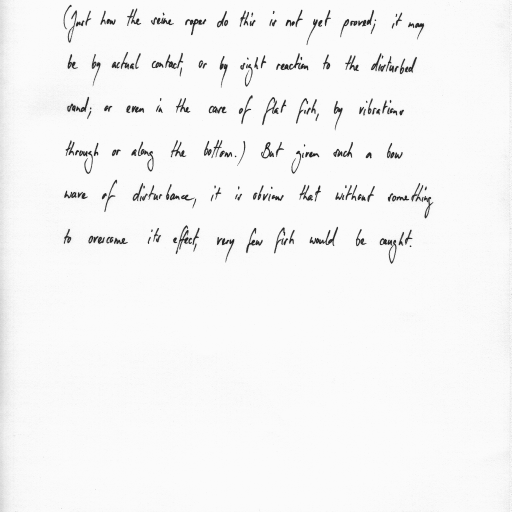 (Just how the seine ropes do this is not yet proved; it may
be by actual contact, or by sight reaction to the disturbed
sand; or even in the case of flat fish, by vibrations
through or along the bottom.) But given such a bow
wave of disturbance, it is obvious that without something
to overcome its effect, very few fish would be caught.